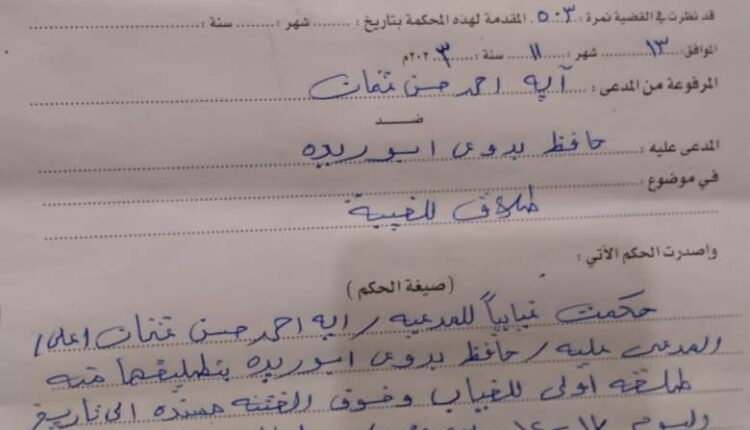 قد نظرت في القضية نمرة : ٥٠٣ المقدمة لهذه المحكمة بتاريخ : ........ شهر : ........ سنة : ........
الموافق : ١٣ شهر : ١١ سنة : ٢٠٢٣م
المرفوعة من المدعى : آيه احمد حسن عثمان
ضد
المدعى عليه : حافظ بدوى ابوريده
في موضوع :
طلاق للغيبة
واصدرت الحكم الآتي :
(صيغة الحكم)
حكمت غيابياً للمدعيه / ايه احمد حسن عثمان (على /
المدعى عليه / حافظ بدوى ابوريده بتطليقها منه
طلقه اولى للغياب وخوف الفتنه مسنده الى تاريخ
واليوم ١٧